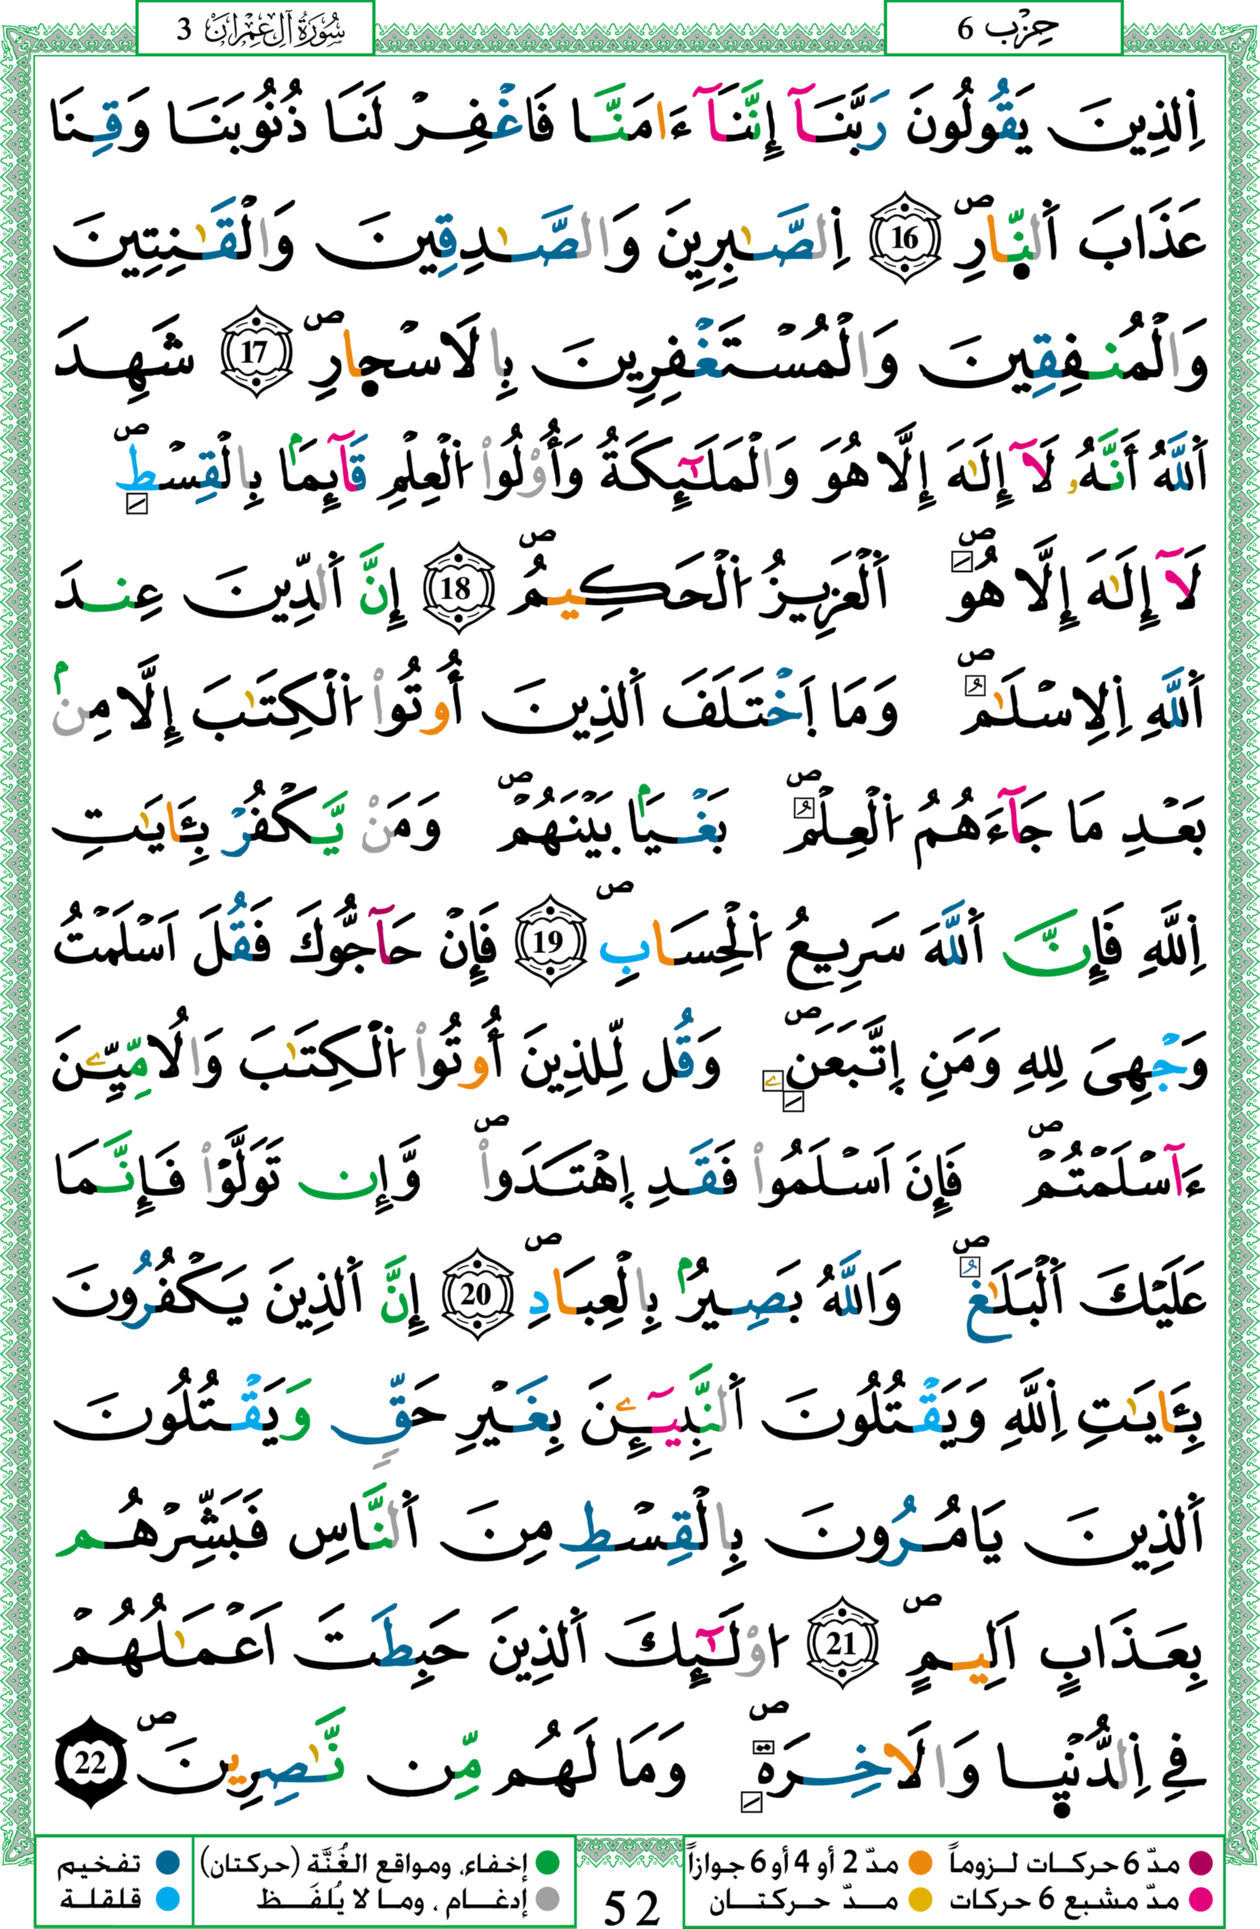 سُورَةُ آلِ عِمْرَان 3
حِزْب 6
اِ۬لذِينَ يَقُولُونَ رَبَّنَآ إِنَّنَآ ءَامَنَّا فَاغْفِرْ لَنَا ذُنُوبَنَا وَقِنَا
عَذَابَ اَ۬لنّ۪ارِ ص 16 اِ۬لصَّٰبِرِينَ وَالصَّٰدِقِينَ وَالْقَٰنِتِينَ
وَالْمُنفِقِينَ وَالْمُسْتَغْفِرِينَ بِالَاسْح۪ارِ ص 17 شَهِدَ
اَ۬للَّهُ أَنَّهُۥ لَآ إِلَٰهَ إِلَّا هُوَ وَالْمَلَٰٓئِكَةُ وَأُوْلُواْ اُ۬لْعِلْمِ قَآئِماَۢ بِالْقِسْطِ ص
لَآ إِلَٰهَ إِلَّا هُوَ ص اَ۬لْعَزِيزُ اُ۬لْحَكِيمُ ص 18 إِنَّ اَ۬لدِّينَ عِندَ
اَ۬للَّهِ اِ۬لِاسْلَٰمُ ص وَمَا اَ۪خْتَلَفَ اَ۬لذِينَ أُوتُواْ اُ۬لْكِتَٰبَ إِلَّا مِنۢ
بَعْدِ مَا جَآءَهُمُ اُ۬لْعِلْمُ ص بَغْياَۢ بَيْنَهُمْ ص وَمَنْ يَّكْفُرْ بِـَٔايَٰتِ
اِ۬للَّهِ فَإِنَّ اَ۬للَّهَ سَرِيعُ اُ۬لْحِسَابِ ص 19 فَإِنْ حَآجُّوكَ فَقُلَ اَسْلَمْتُ
وَجْهِىَ لِلهِ وَمَنِ اِ۪تَّبَعَنِۦ ص وَقُل لِّلذِينَ أُوتُواْ اُ۬لْكِتَٰبَ وَالُامِّيِّـۧنَ
ءَآسْلَمْتُمْ ص فَإِنَ اَسْلَمُواْ فَقَدِ اِ۪هْتَدَواْ ص وَّإِن تَوَلَّوْاْ فَإِنَّمَا
عَلَيْكَ اَ۬لْبَلَٰغُ ص وَاللَّهُ بَصِيرُۢ بِالْعِبَادِ ص 20 إِنَّ اَ۬لذِينَ يَكْفُرُونَ
بِـَٔايَٰتِ اِ۬للَّهِ وَيَقْتُلُونَ اَ۬لنَّبِيٓـِٕۧنَ بِغَيْرِ حَقٍّ وَيَقْتُلُونَ
اَ۬لذِينَ يَامُرُونَ بِالْقِسْطِ مِنَ اَ۬لنَّاسِ فَبَشِّرْهُم
بِعَذَابٍ اَلِيمٍ ص 21 ا۟وْلَٰٓئِكَ اَ۬لذِينَ حَبِطَتَ اَعْمَٰلُهُمْ
فِى اِ۬لدُّنْي۪ا وَالَاخِرَةِ ص وَمَا لَهُم مِّن نَّٰصِرِينَ ص 22
مدّ 6 حركات لـزوماً مدّ 2 أو 4 أو 6 جوازاً إخفاء، ومواقع الغُنَّة (حركتان) تفخيم
مدّ مشبع 6 حركات مـدّ حـركتــان إدغـام ، ومـا لا يُلفَـظ قلقلة
52